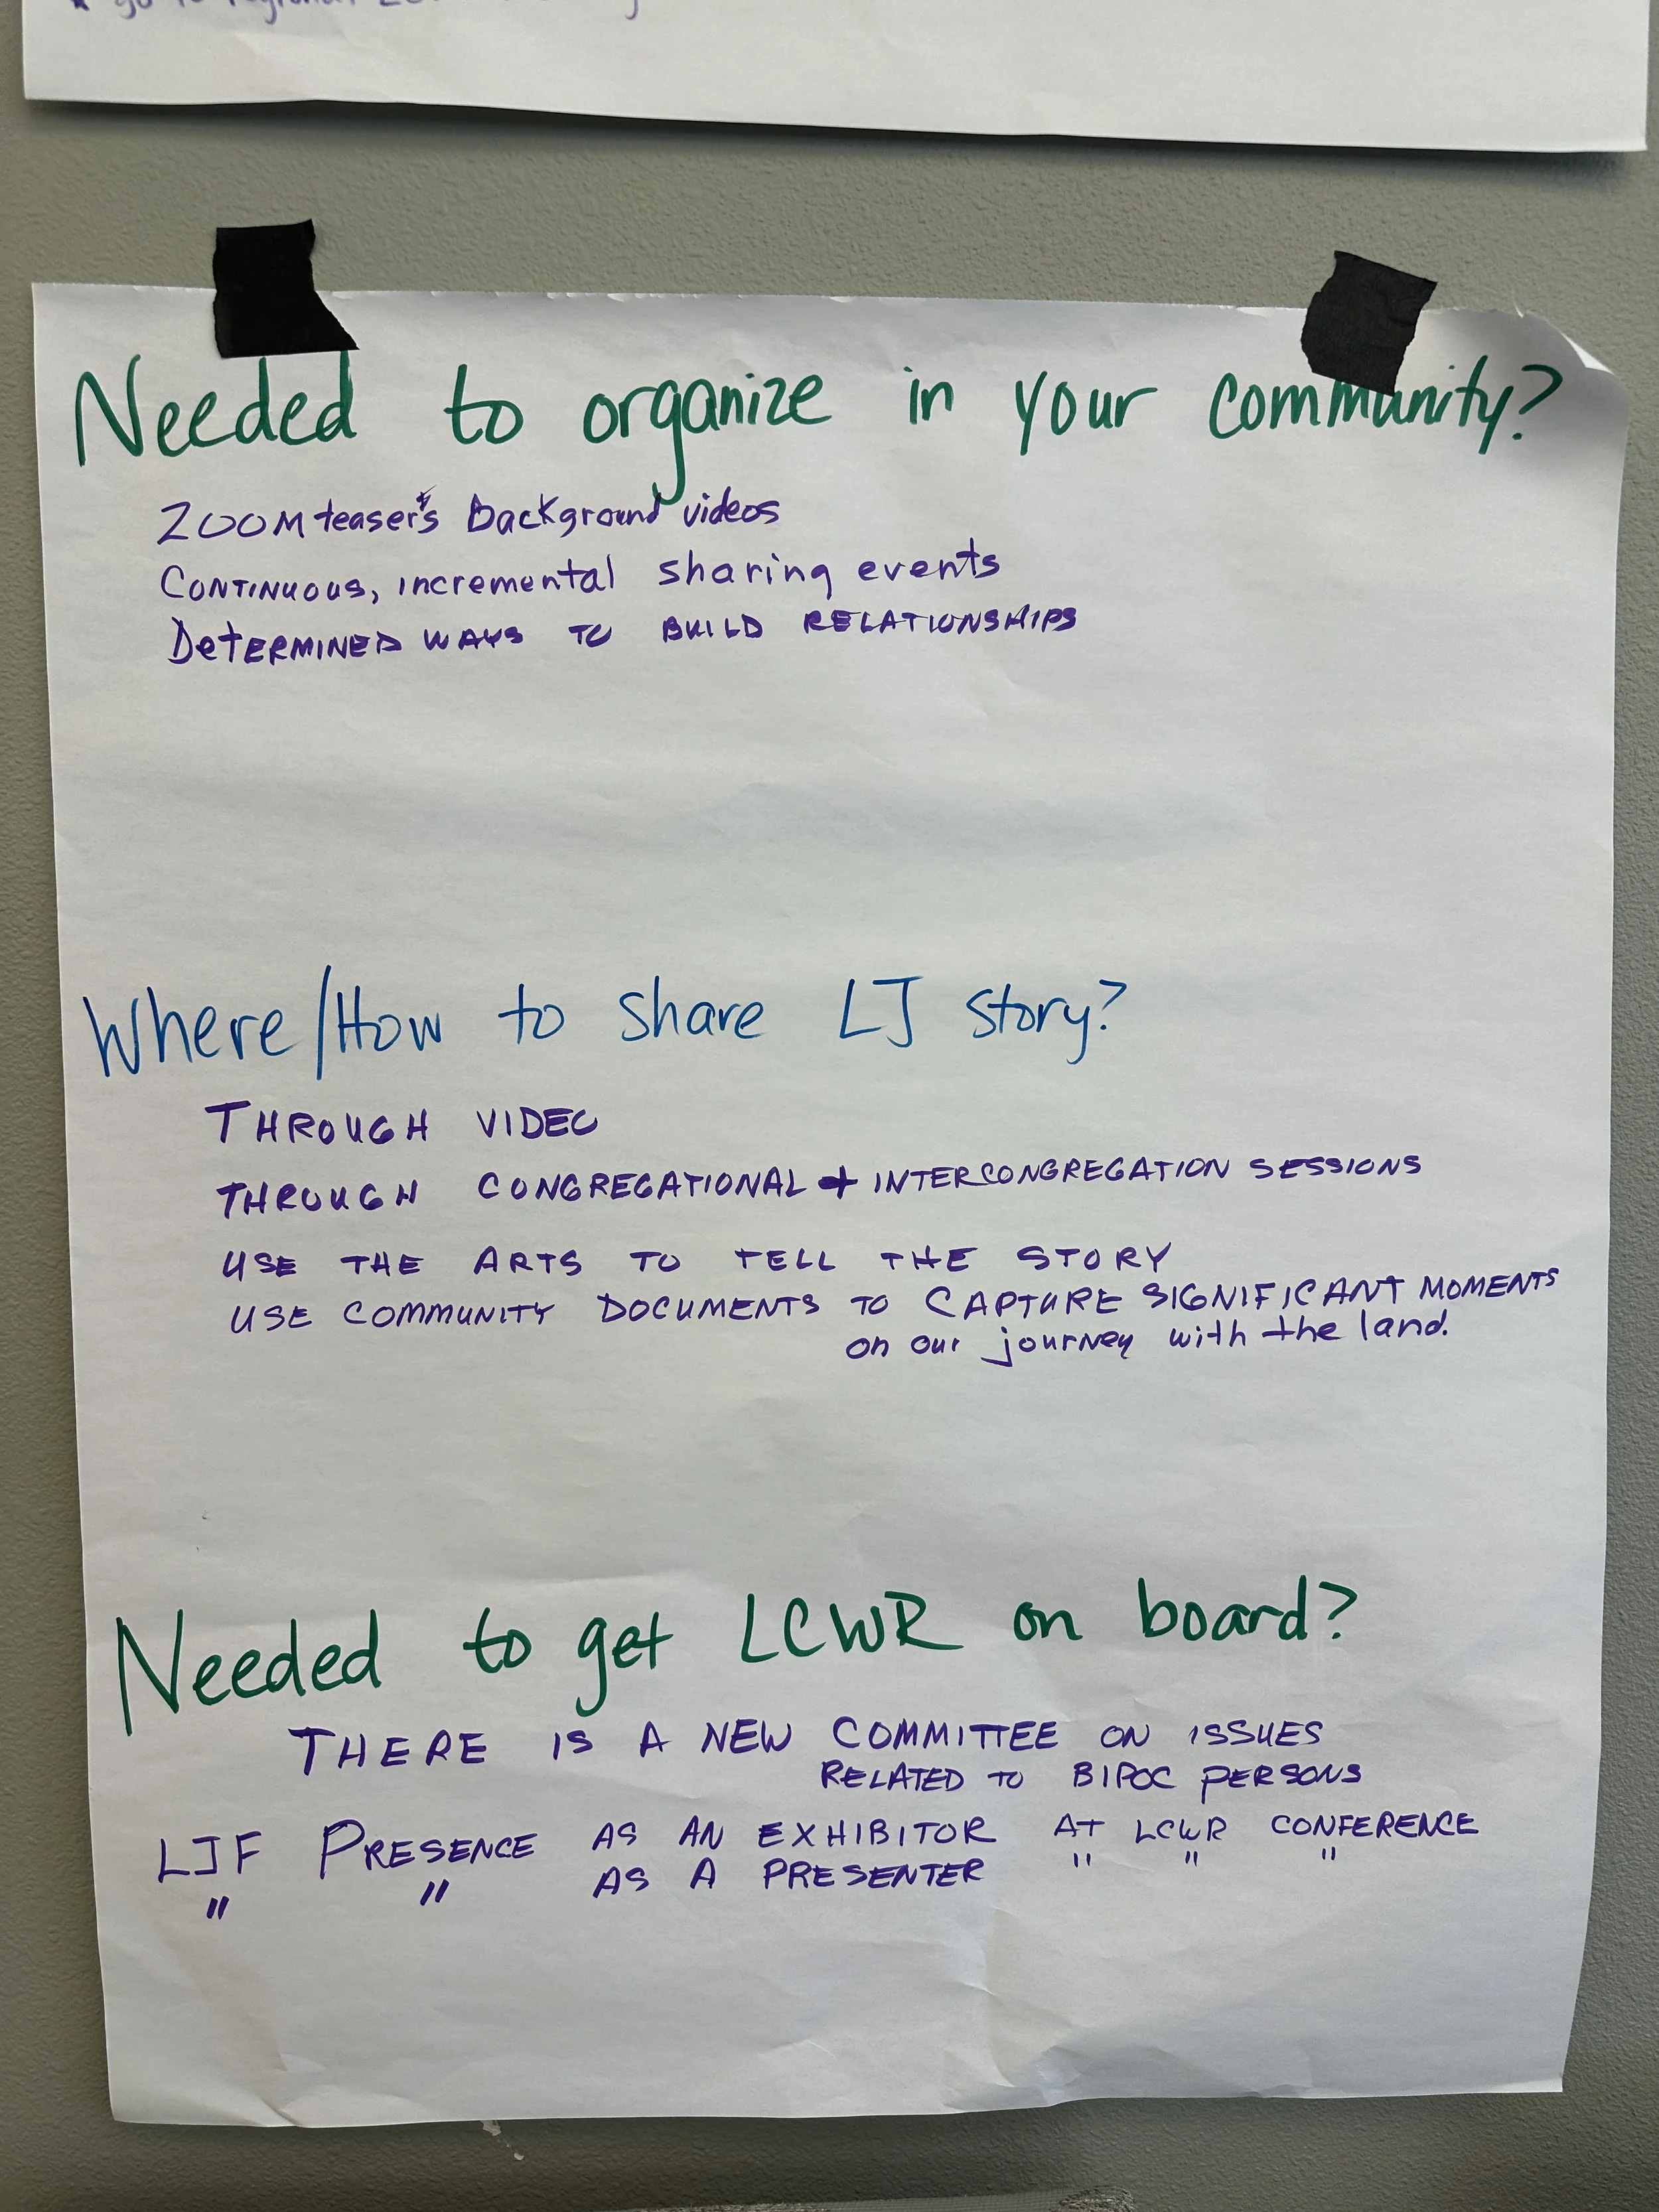 go to regional
Needed to organize in your community?
ZOOM teaser's & Background videos
CONTINUOUS, incremental sharing events
DeTERMINED WAYS TO BUILD RELATIONSHIPS
Where/How to share LJ story?
THROUGH VIDEO
THROUGH CONGREGATIONAL + INTERCONGREGATION SESSIONS
USE THE ARTS TO TELL THE STORY
USE COMMUNITY DOCUMENTS TO CAPTURE SIGNIFICANT MOMENTS
on our journey with the land.
Needed to get LCWR on board?
THERE IS A NEW COMMITTEE ON ISSUES
RELATED TO BIPOC PERSONS
LJF PRESENCE AS AN EXHIBITOR AT LCWR CONFERENCE
" " AS A PRESENTER " " "